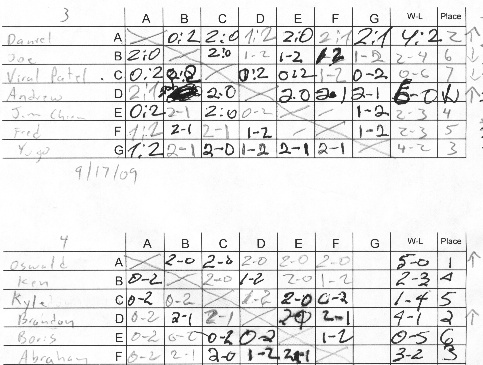 3 A B C D E F G W-L Place
Daniel A 0:2 2:0 1:2 2:0 2:1 2:1 4:2 2
Joe B 2:0 2:0 1-2 1-2 1-2 1-2 2-4 6
Viral Patel. C 0:2 0:2 0:2 0:2 1-2 0-2 0-6 7
Andrew D 2:1 2:0 2:0 2:1 2-1 6-0
Jim E 0:2 2-1 2:0 0-2 1-2 2-3 4
Fred F 1:2 2-1 2-1 1-2 1-2 2-3 5
Yugo G 1:2 2-1 2-0 1-2 2-1 2-1 4-2 3
9/17/09
4 A B C D E F G W-L Place
Oswald A 2-0 2-0 2-0 2-0 2-0 5-0 1
Ken B 0-2 2-0 1-2 2-0 1-2 2-3 4
Kyle C 0-2 0-2 1-2 2-0 0-2 1-4 5
Brandon D 0-2 2-1 2-1 2-0 2-1 4-1 2
Boris E 0-2 0-0 0-2 0-2 1-2 0-5 6
Abraham F 0-2 2-1 2-0 1-2 2-1 3-2 3